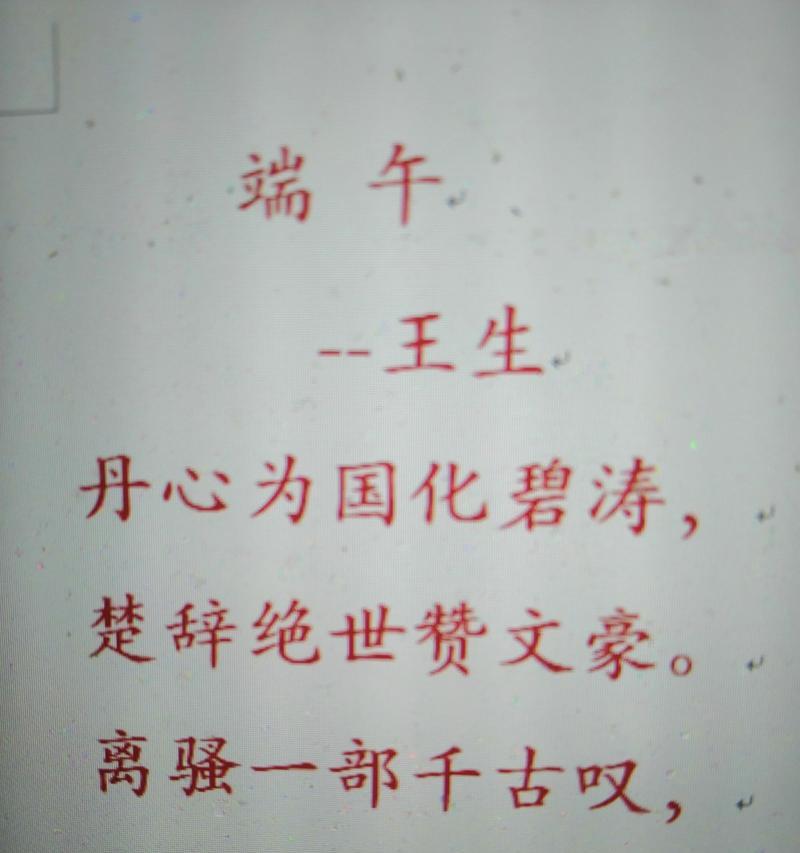 端 午
--王生
丹心为国化碧涛，
楚辞绝世赞文豪。
离骚一部千古叹，